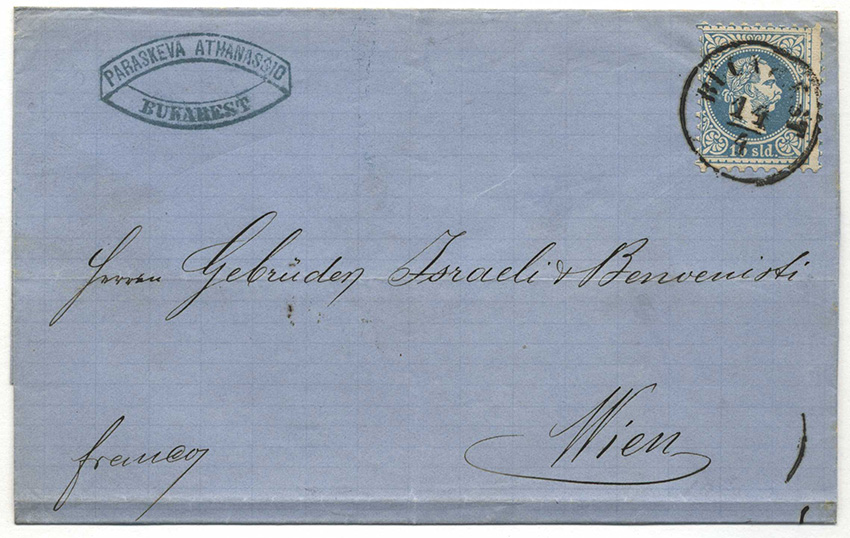 PARASKEVA ATHANASSIO
BUKAREST
10 sld.
Herren Gebrüder Israeli & Benvenisti
Wien
franco